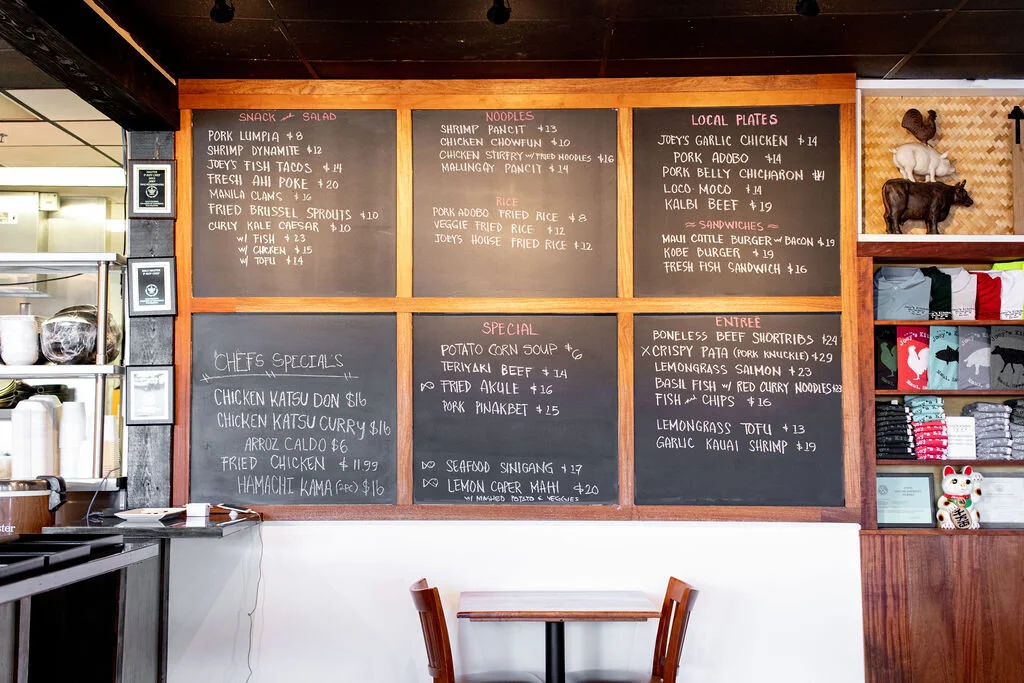 SNACK and SALAD
PORK LUMPIA $8
SHRIMP DYNAMITE $12
JOEY'S FISH TACOS $14
FRESH AHI POKE $20
MANILA CLAMS $16
FRIED BRUSSEL SPROUTS $10
CURLY KALE CAESAR $10
W/ FISH $23
W/ CHICKEN $15
W/ TOFU $14
NOODLES
SHRIMP PANCIT $13
CHICKEN CHOWFUN $10
CHICKEN STIRFRY W/ FRIED NOODLES $16
MALUNGAY PANCIT $14
RICE
PORK ADOBO FRIED RICE $8
VEGGIE FRIED RICE $12
JOEY'S HOUSE FRIED RICE $12
LOCAL PLATES
JOEY'S GARLIC CHICKEN $14
PORK ADOBO $14
PORK BELLY CHICHARON $14
LOCO MOCO $14
KALBI BEEF $19
SANDWICHES
MAUI CATTLE BURGER W/ BACON $19
KOBE BURGER $19
FRESH FISH SANDWICH $16
CHEFS SPECIALS
CHICKEN KATSU DON $16
CHICKEN KATSU CURRY $16
ARROZ CALDO $6
FRIED CHICKEN $11.99
HAMACHI KAMA (2PC) $16
SPECIAL
POTATO CORN SOUP $6
TERIYAKI BEEF $14
FRIED AKULE $16
PORK PINAKBET $15
SEAFOOD SINIGANG $17
LEMON CAPER MAHI $20
W/ MASHED POTATO & VEGGIES
ENTREE
BONELESS BEEF SHORTRIBS $24
X CRISPY PATA (PORK KNUCKLE) $29
LEMONGRASS SALMON $23
BASIL FISH W/ RED CURRY NOODLES $23
FISH and CHIPS $16
LEMONGRASS TOFU $13
GARLIC KAUAI SHRIMP $19